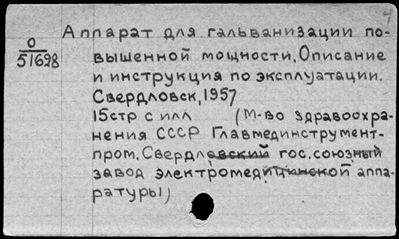 О
51698
Аппарат для гальванизации по-
вышенной мощности, Описание
и инструкция по эксплуатации.
Свердловск, 1957
15стр с илл (М-во здравоохра-
нения СССР Главмединструмент-
пром. Свердловский гос. союзный
завод электромедицинской аппа-
ратуры)